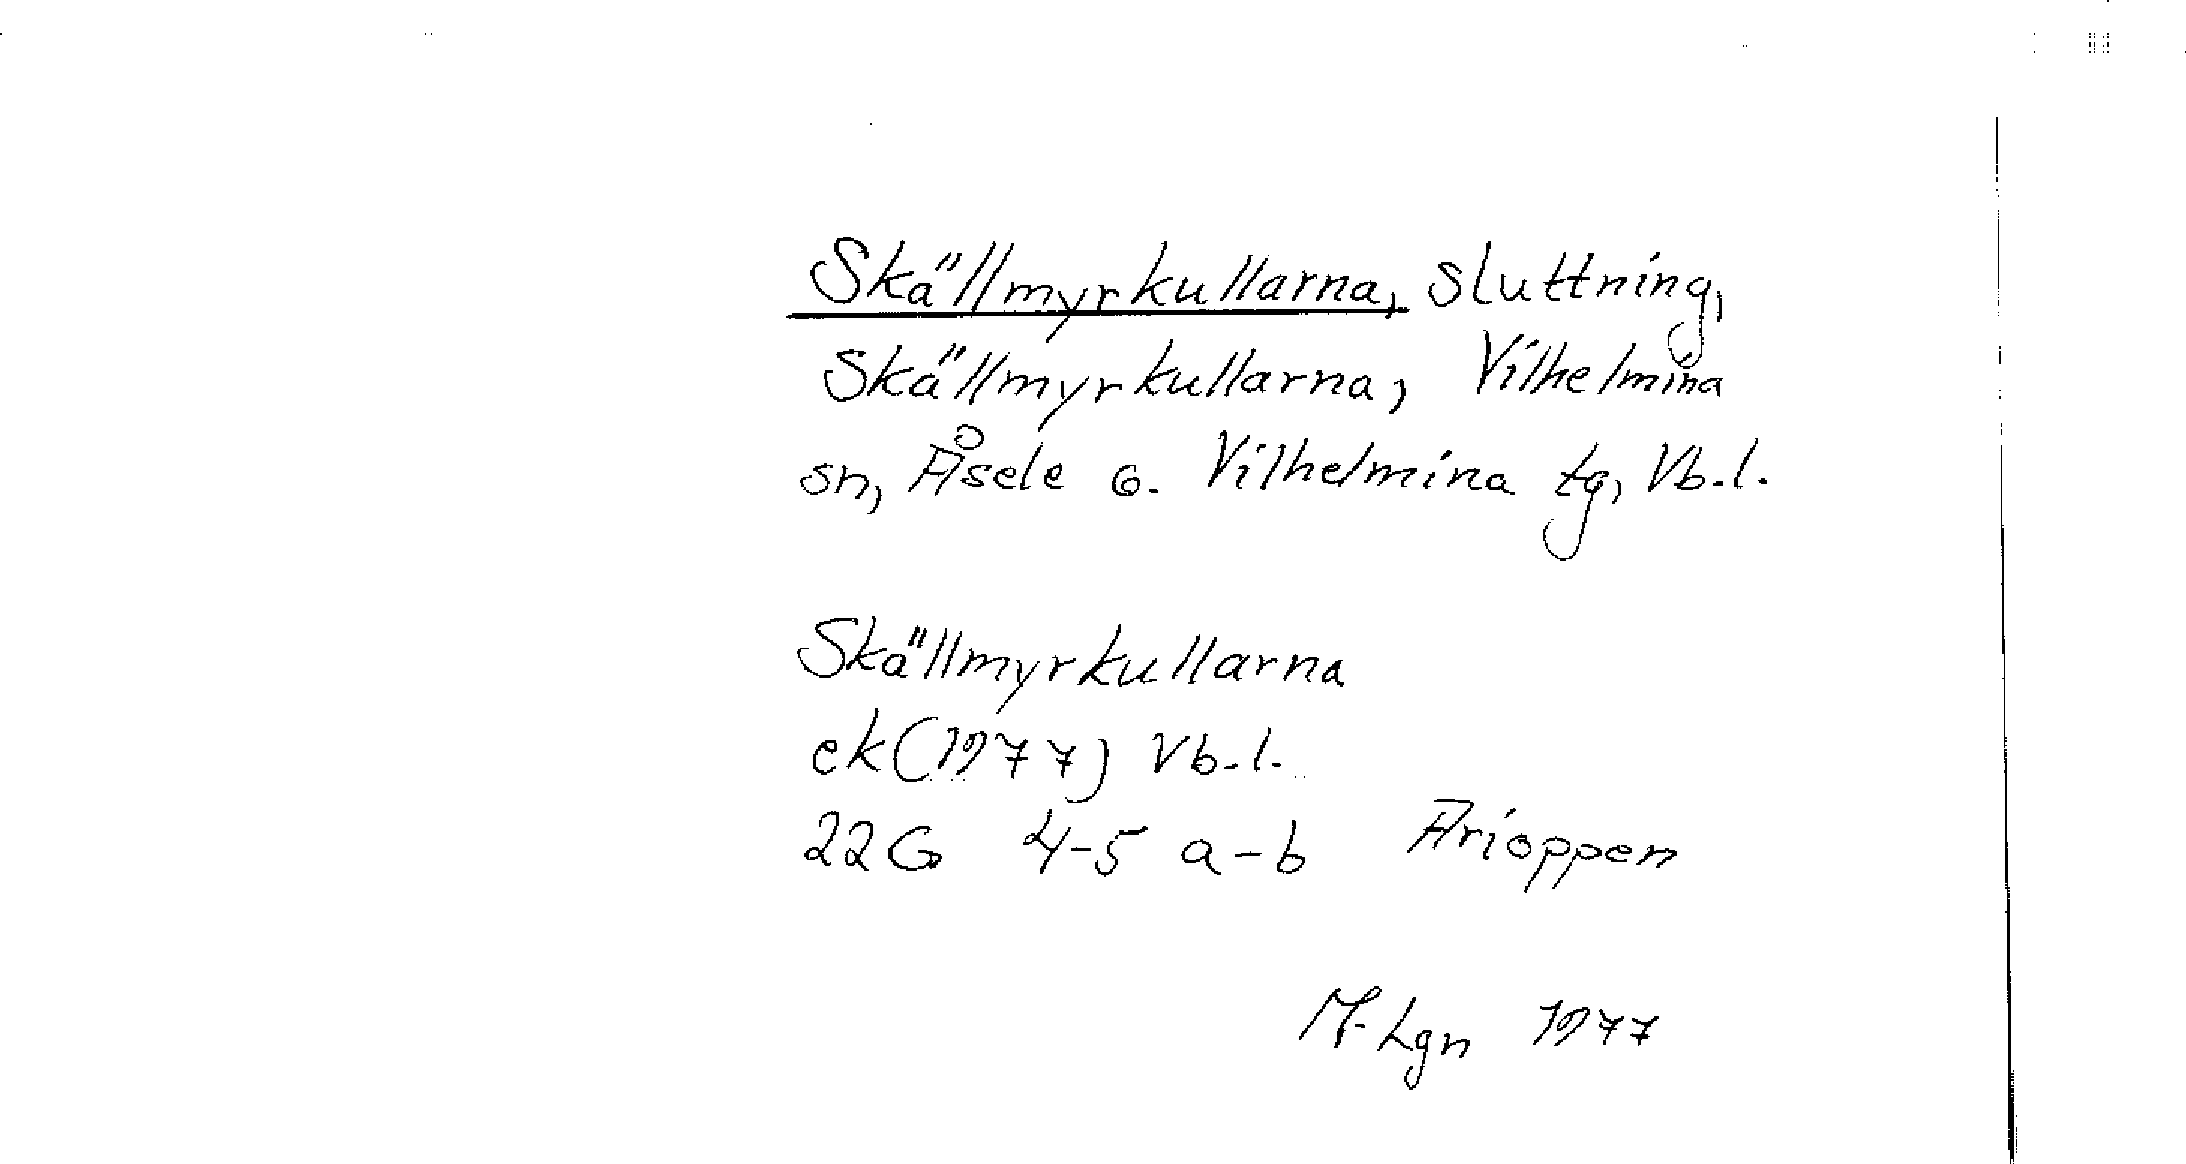 Skällmyrkullarna, sluttning,
Skällmyrkullarna, Vilhelmina
sn, Åsele o. Vilhelmina tg, Vb.l.
Skällmyrkullarna
ek (1977) Vb.l.
22G 4-5 a-b Arioppen
M. Lgn 1977